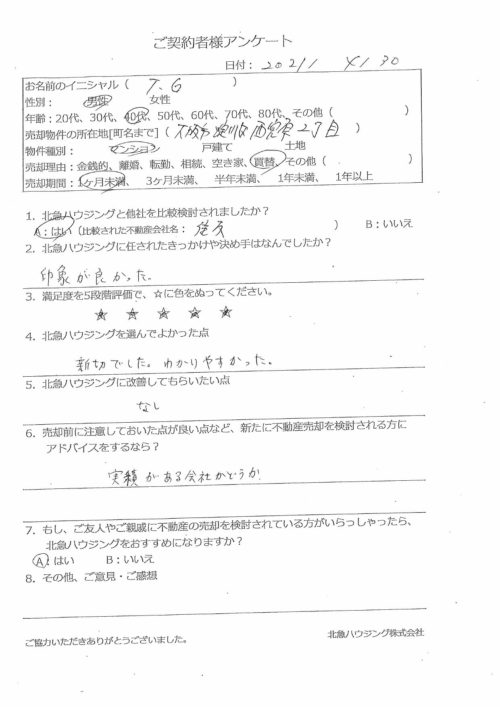 ご契約者様アンケート
日付： 2021/ 4/ 30
お名前のイニシャル（ T. G ）
性別： 男性 女性
年齢：20代、30代、40代、50代、60代、70代、80代、その他（ ）
売却物件の所在地[町名まで]（大阪市淀川区西宮原2丁目）
物件種別： マンション 戸建て 土地
売却理由：金銭的、離婚、転勤、相続、空き家、買替、その他（ ）
売却期間：1ヶ月未満、 3ヶ月未満、 半年未満、 1年未満、 1年以上
1. 北急ハウジングと他社を比較検討されましたか？
A：はい（比較された不動産会社名： ） B：いいえ
2. 北急ハウジングに任されたきっかけや決め手はなんでしたか？
印象が良かった。
3. 満足度を5段階評価で、☆に色をぬってください。
★ ★ ★ ★ ★
4. 北急ハウジングを選んでよかった点
親切でした。わかりやすかった。
5. 北急ハウジングに改善してもらいたい点
なし
6. 売却前に注意しておいた点が良い点など、新たに不動産売却を検討される方に
アドバイスをするなら？
実績がある会社かどうか
7. もし、ご友人やご親戚に不動産の売却を検討されている方がいらっしゃったら、
北急ハウジングをおすすめになりますか？
A：はい B：いいえ
8. その他、ご意見・ご感想
ご協力いただきありがとうございました。
北急ハウジング株式会社